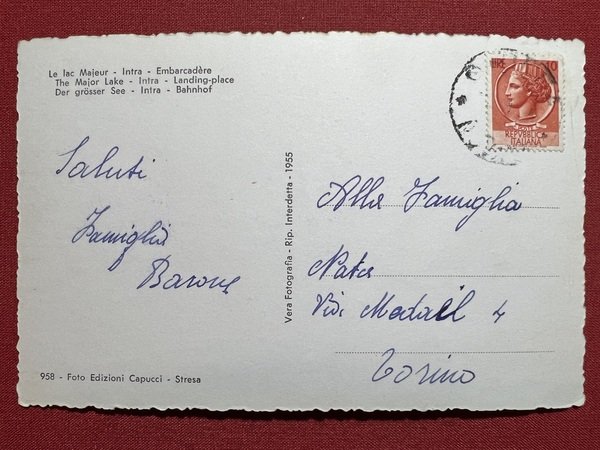 Le lac Majeur - Intra - Embarcadère
The Major Lake - Intra - Landing-place
Der grösser See - Intra - Bahnhof
Saluti
Famiglia
Barone
958 - Foto Edizioni Capucci - Stresa
Vera Fotografia - Rip. Interdetta - 1955
REPVBBLICA
ITALIANA
Alla Famiglia
Nata
Via Medail 4
Torino